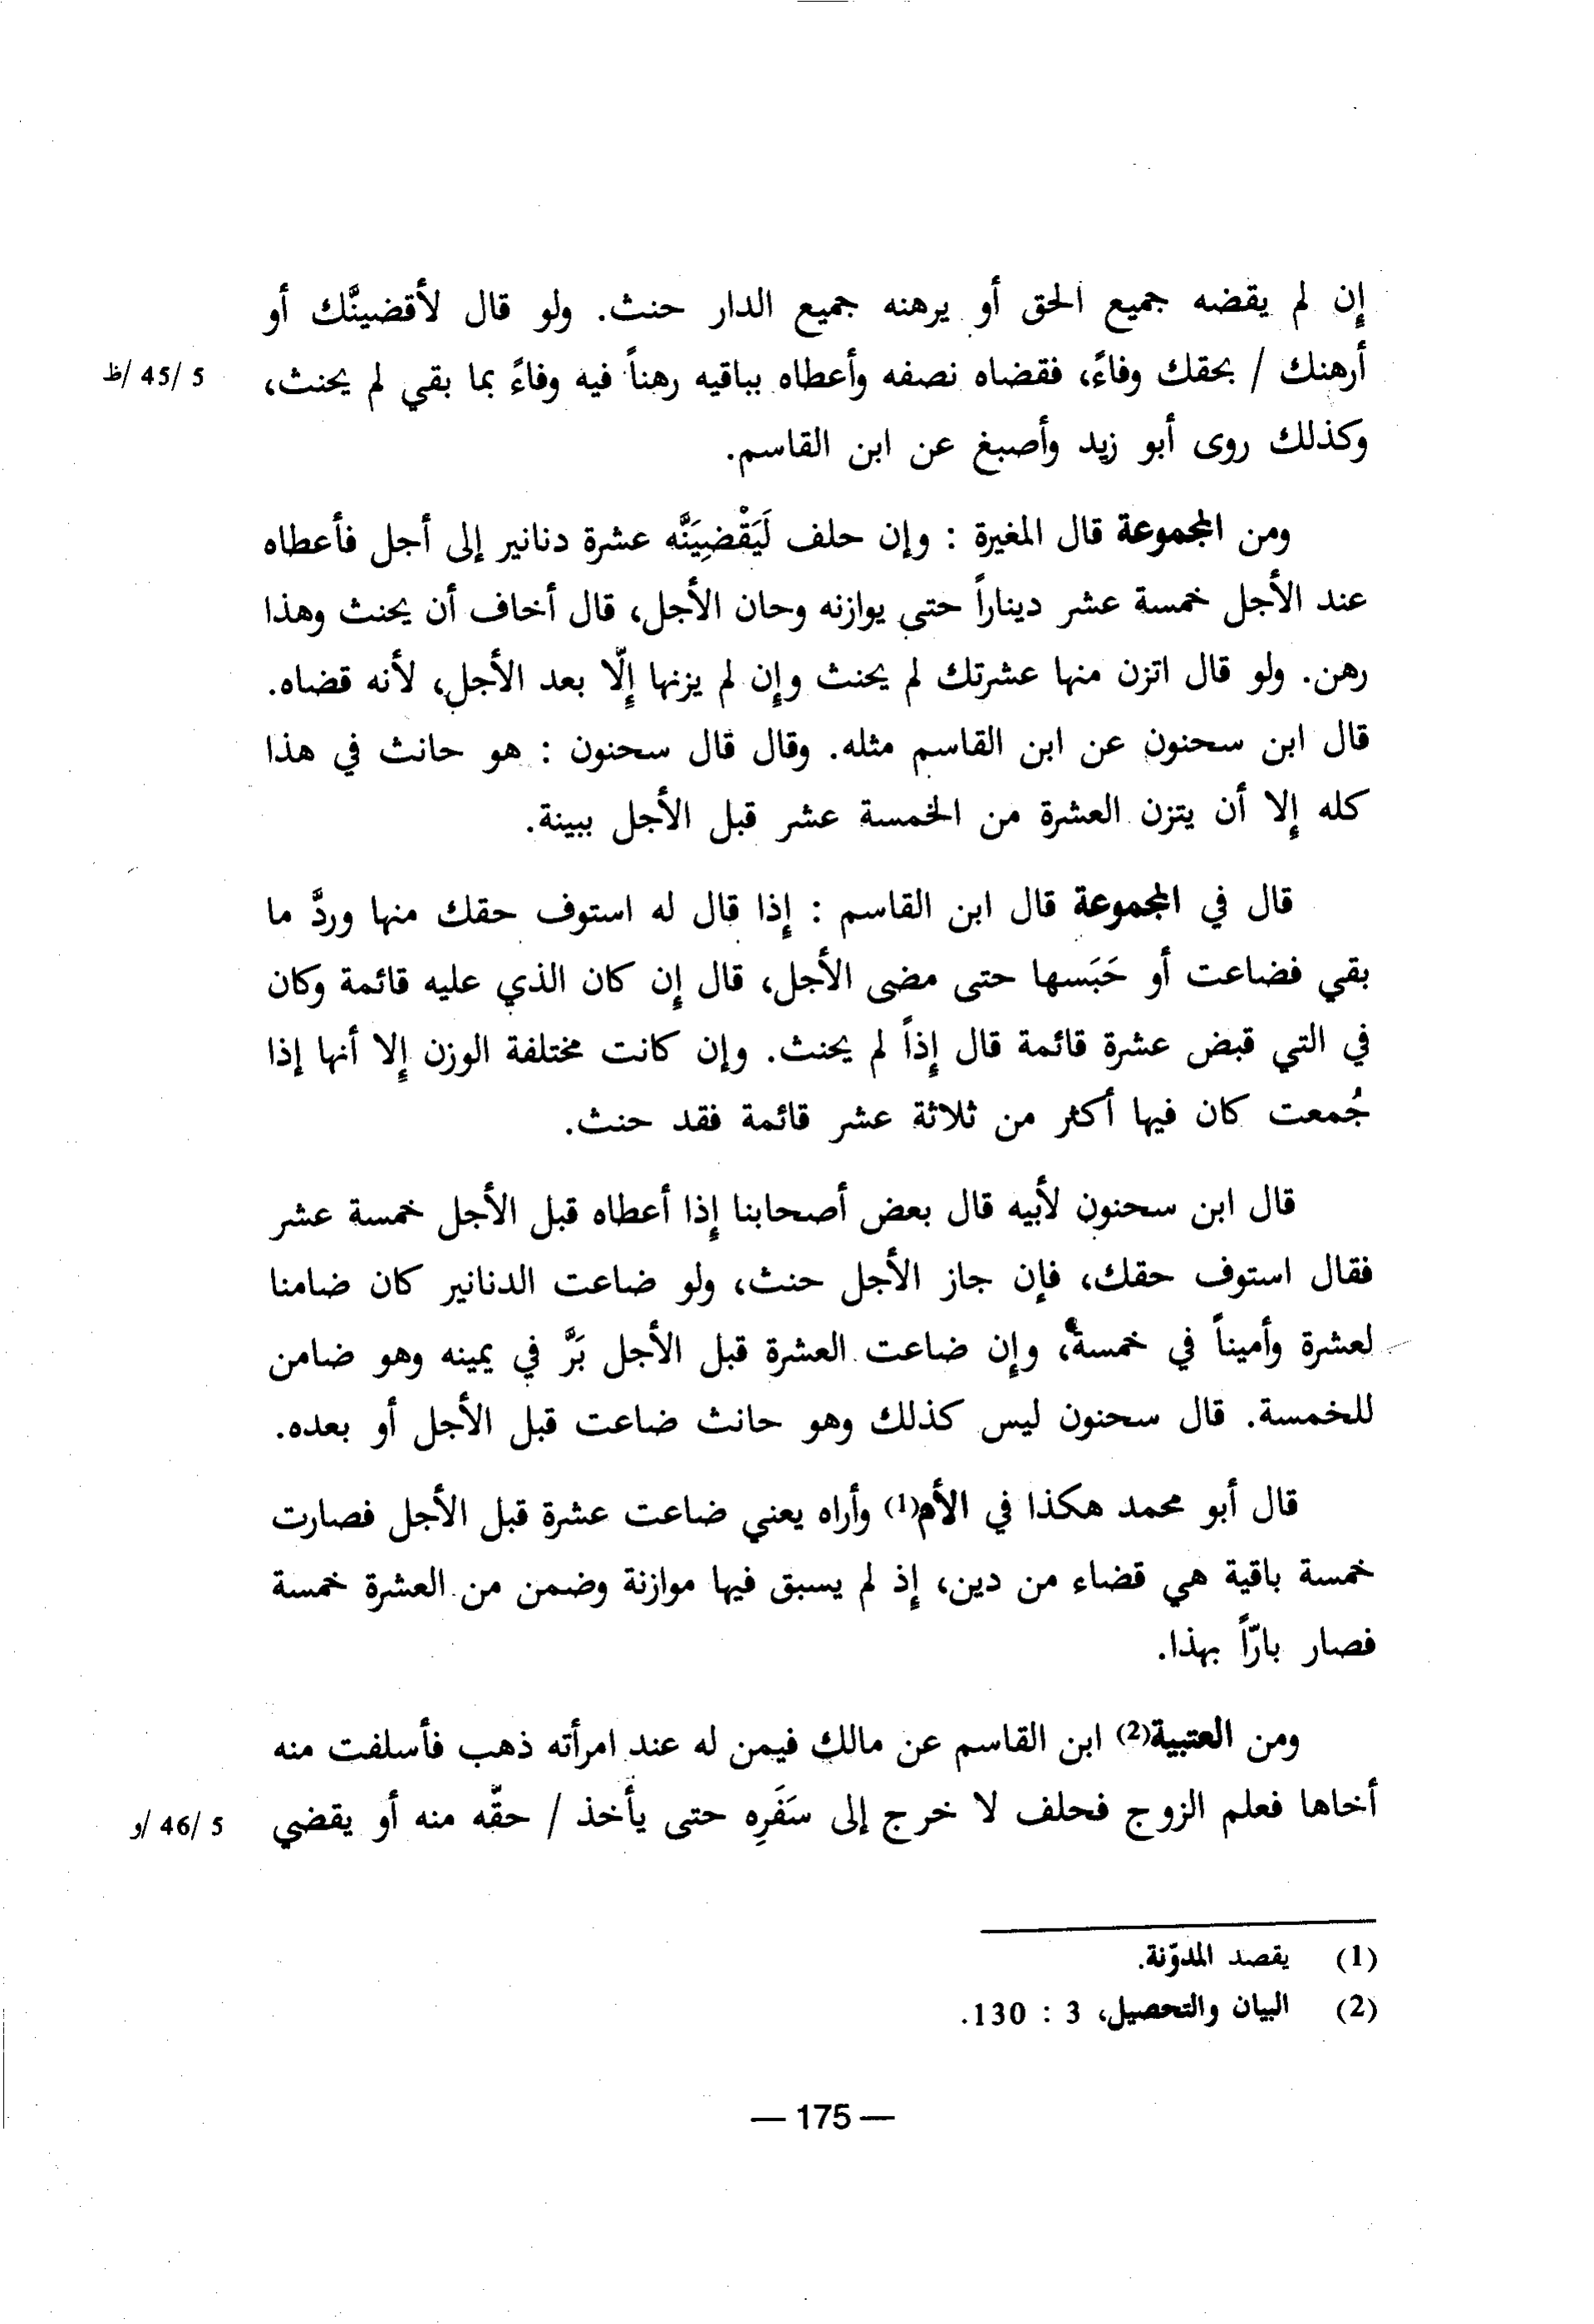 إن لم يقضه جميع الحق أو يرهنه جميع الدار حنث. ولو قال لأقضينَّك أو
أرهنك / بحقك وفاءً، فقضاه نصفه وأعطاه بباقيه رهناً فيه وفاءً بما بقي لم يحنث،
5 /45 /ظ
وكذلك روى أبو زيد وأصبغ عن ابن القاسم.
ومن المجموعة قال المغيرة : وإن حلف لَيَقْضِيَنَّه عشرة دنانير إلى أجل فأعطاه
عند الأجل خمسة عشر ديناراً حتى يوازنه وحان الأجل، قال أخاف أن يحنث وهذا
رهن. ولو قال اتزن منها عشرتك لم يحنث وإن لم يزنها إلّا بعد الأجل، لأنه قضاه.
قال ابن سحنون عن ابن القاسم مثله. وقال قال سحنون : هو حانث في هذا
كله إلا أن يتزن العشرة من الخمسة عشر قبل الأجل ببينة.
قال في المجموعة قال ابن القاسم : إذا قال له استوف حقك منها وردَّ ما
بقي فضاعت أو حَبَسها حتى مضى الأجل، قال إن كان الذي عليه قائمة وكان
في التي قبض عشرة قائمة قال إذاً لم يحنث. وإن كانت مختلفة الوزن إلا أنها إذا
جُمعت كان فيها أكثر من ثلاثة عشر قائمة فقد حنث.
قال ابن سحنون لأبيه قال بعض أصحابنا إذا أعطاه قبل الأجل خمسة عشر
فقال استوف حقك، فإن جاز الأجل حنث، ولو ضاعت الدنانير كان ضامنا
لعشرة وأميناً في خمسة، وإن ضاعت العشرة قبل الأجل بَرَّ في يمينه وهو ضامن
للخمسة. قال سحنون ليس كذلك وهو حانث ضاعت قبل الأجل أو بعده.
قال أبو محمد هكذا في الأم(1) وأراه يعني ضاعت عشرة قبل الأجل فصارت
خمسة باقية هي قضاء من دين، إذ لم يسبق فيها موازنة وضمن من العشرة خمسة
فصار بارّاً بهذا.
ومن العتبية(2) ابن القاسم عن مالك فيمن له عند امرأته ذهب فأسلفت منه
أخاها فعلم الزوج فحلف لا خرج إلى سَفَرِه حتى يأخذ / حقّه منه أو يقضي
5 /46 /و
(1) يقصد المدوّنة.
(2) البيان والتحصيل، 3 : 130.
— 175 —